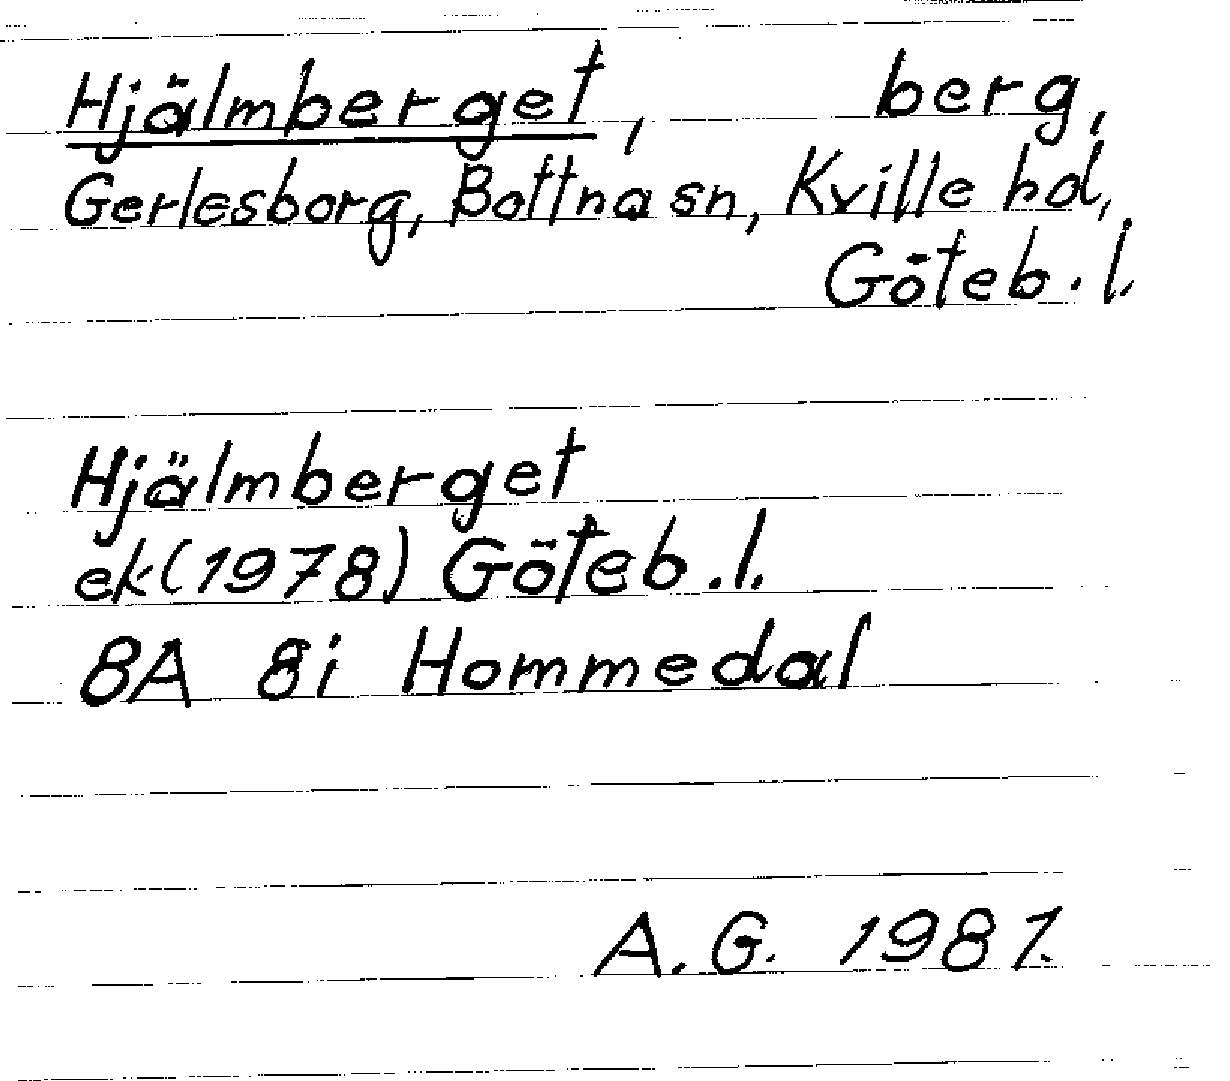 Hjälmberget, berg,
Gerlesborg, Bottna sn, Kville hd,
Göteb. l.
Hjälmberget
ek (1978) Göteb. l.
8A 8i Hommedal
A. G. 1987.